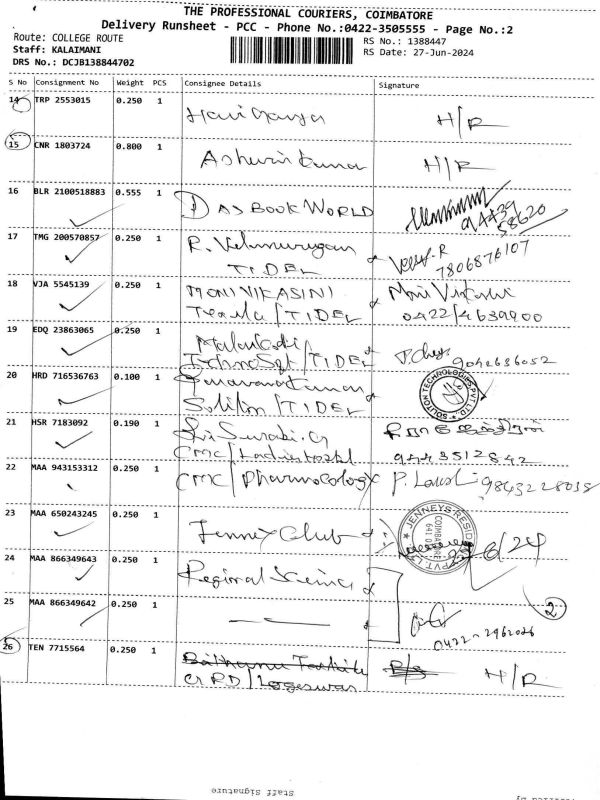 THE PROFESSIONAL COURIERS, COIMBATORE
Delivery Runsheet - PCC - Phone No.:0422-3505555 - Page No.:2
Route: COLLEGE ROUTE
RS No.: 1388447
Staff: KALAIMANI
RS Date: 27-Jun-2024
DRS No.: DCJB138844702
S No Consignment No Weight PCS Consignee Details Signature
14 TRP 2553015 0.250 1 H/R
15 CNR 1803724 0.800 1 Ashwin Kumar H/R
16 BLR 2100518883 0.555 1 DAS BOOK WORLD 94439
58620
17 TMG 200570857 0.250 1 R. Velmurugan
TIDEL 7806876107
18 VJA 5545139 0.250 1 MONIVIKASINI
TIDEL 0422/4639900
19 EDQ 23863065 0.250 1
/TIDEL 9042686052
20 HRD 716536763 0.100 1 Saravana Kumar
Soliton/TIDEL SOLITON TECHNOLOGIES PVT LTD.
21 HSR 7183092 0.190 1
CMC/ 9443512842
22 MAA 943153312 0.250 1 CMC/Pharmacology 9843228038
23 MAA 650243245 0.250 1 Jenney Club JENNEYS RESID
COIMBATORE
641 0
PVT. LT
6/24
24 MAA 866349643 0.250 1 Regional Science
25 MAA 866349642 0.250 1 2
0422-2962026
26 TEN 7715564 0.250 1 H/R
CRRD/Logeswar
Staff Signature